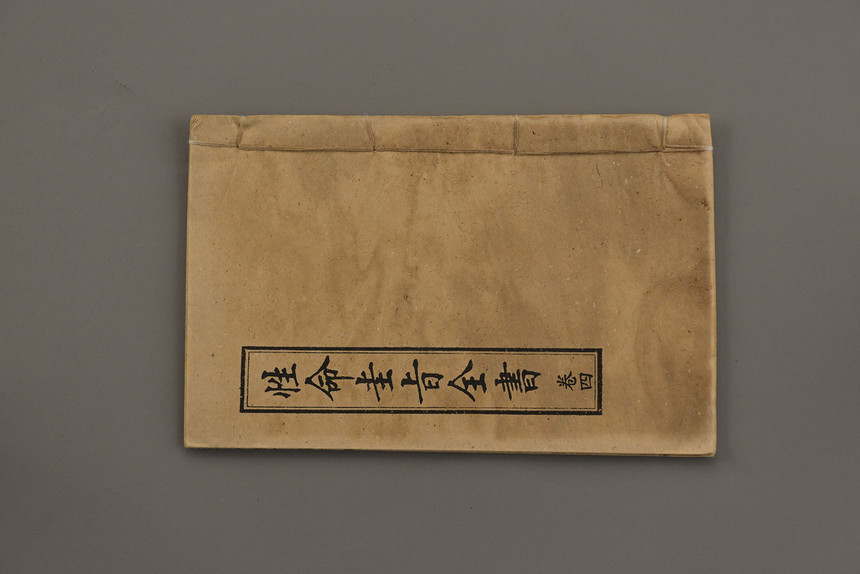 性命圭旨全書 卷四